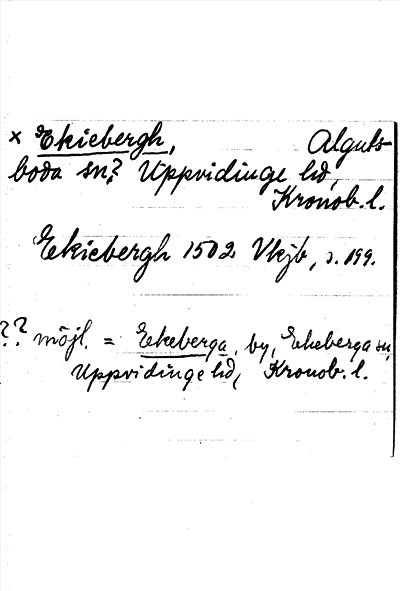 × Ekiebergh, Alguts-
boda sn? Uppvidinge hd,
Kronob. l.
Ekiebergh 1502 Vkjb, s. 199.
?? möjl. = Ekeberga, by, Ekeberga sn,
Uppvidinge hd, Kronob. l.